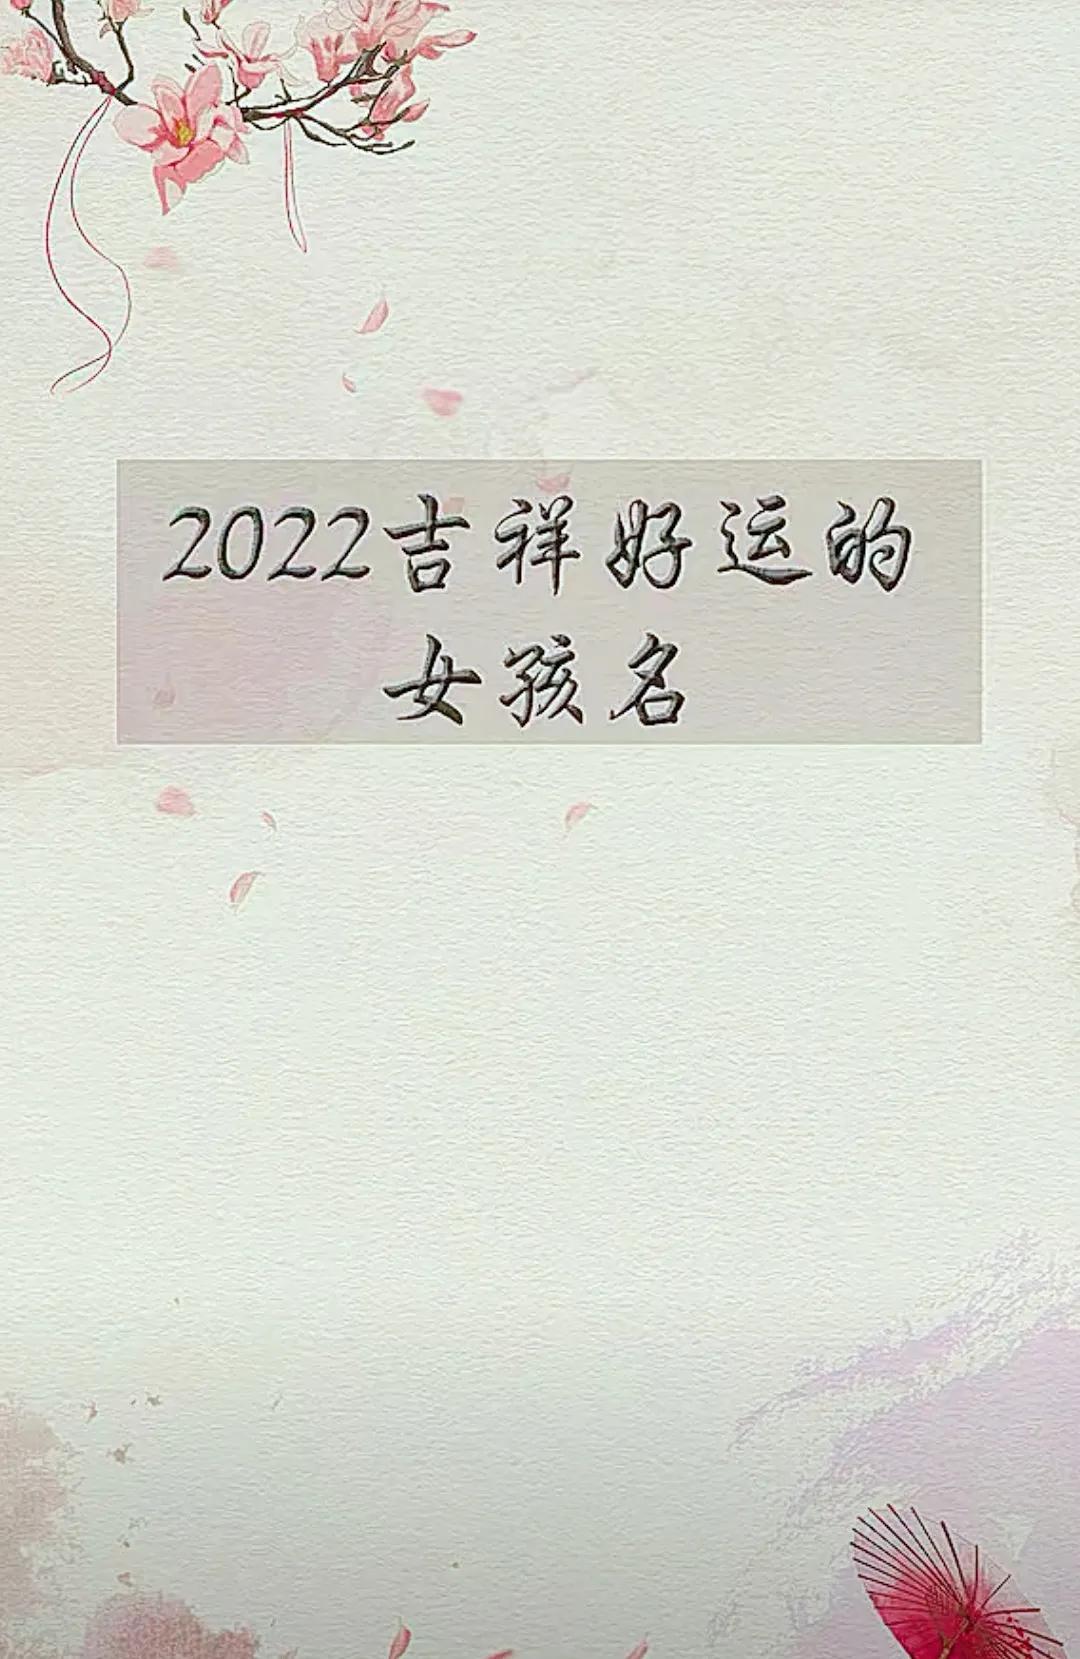 2022吉祥好运的
女孩名